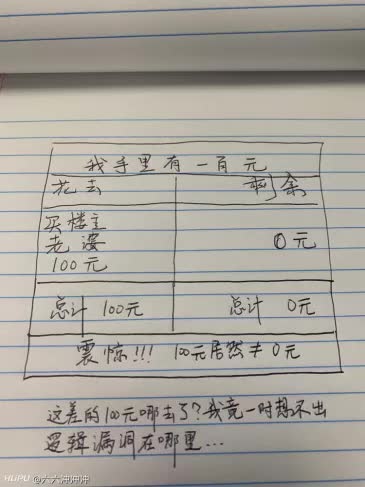 我手里有一百元
花去 剩余
买楼主
老婆 0元
100元
总计 100元 总计 0元
震惊!!! 100元居然≠0元
这差的100元哪去了?我竟一时想不出
逻辑漏洞在哪里...
HUPU @大大冲冲冲